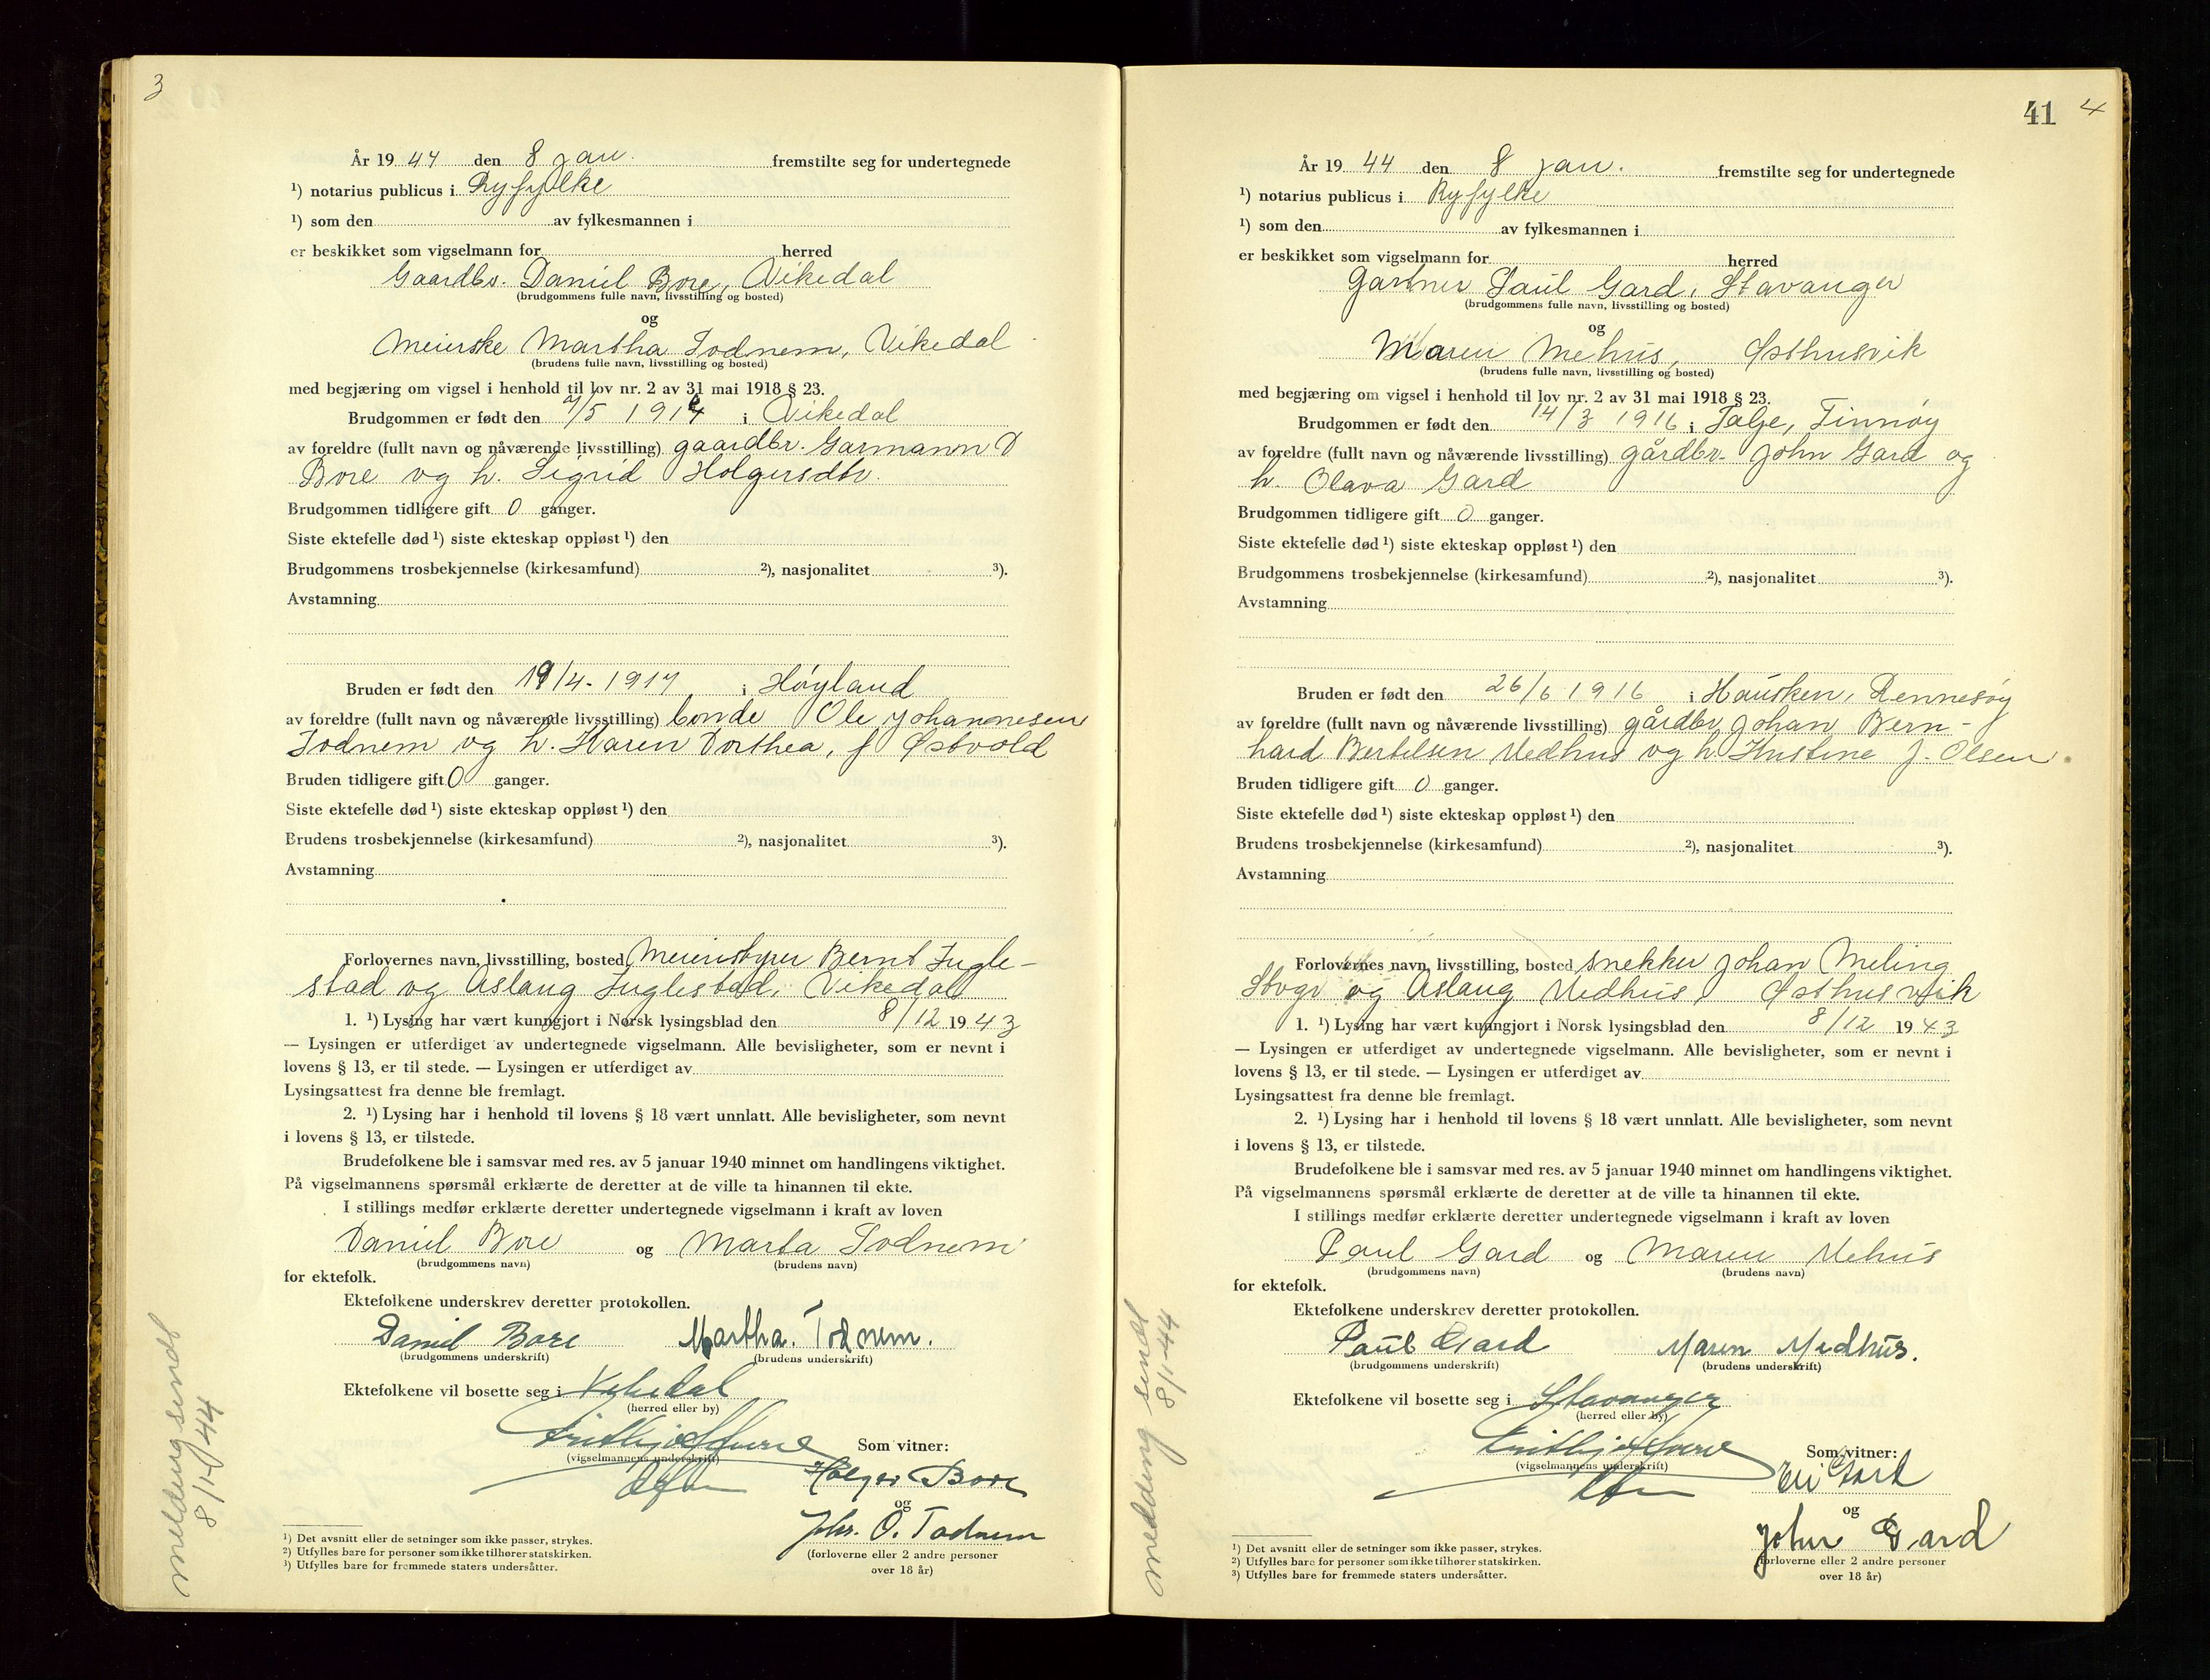 3
År 19 44 den 8 jan. fremstilte seg for undertegnede
¹) notarius publicus i Ryfylke
¹) som den av fylkesmannen i
er beskikket som vigselmann for herred
Gaardbr. Daniel Bore, Vikedal
(brudgommens fulle navn, livsstilling og bosted)
og
Meierske Martha Todnem, Vikedal
(brudens fulle navn, livsstilling og bosted)
med begjæring om vigsel i henhold til lov nr. 2 av 31 mai 1918 § 23.
Brudgommen er født den /5 191 i Vikedal
av foreldre (fullt navn og nåværende livsstilling) gaardbr. Garmann D
Bore og h. Sigrid Holgersdtr.
Brudgommen tidligere gift 0 ganger.
Siste ektefelle død ¹) siste ekteskap oppløst ¹) den
Brudgommens trosbekjennelse (kirkesamfund) ²), nasjonalitet ³).
Avstamning
Bruden er født den 19/4- 1917 i Høyland
av foreldre (fullt navn og nåværende livsstilling) bonde Ole Johannesen
Todnem og h. Karen Dorthea, f Østvold
Bruden tidligere gift 0 ganger.
Siste ektefelle død ¹) siste ekteskap oppløst ¹) den
Brudens trosbekjennelse (kirkesamfund) ²), nasjonalitet ³).
Avstamning
Forlovernes navn, livsstilling, bosted Meieribstyrer Bernt Ingle-
stad og Aslaug Inglestad, Vikedal
1. ¹) Lysing har vært kunngjort i Norsk lysingsblad den 8/12 19 43
— Lysingen er utferdiget av undertegnede vigselmann. Alle bevisligheter, som er nevnt i
lovens § 13, er til stede. — Lysingen er utferdiget av
Lysingsattest fra denne ble fremlagt.
2. ¹) Lysing har i henhold til lovens § 18 vært unnlatt. Alle bevisligheter, som nevnt
i lovens § 13, er tilstede.
Brudefolkene ble i samsvar med res. av 5 januar 1940 minnet om handlingens viktighet.
På vigselmannens spørsmål erklærte de deretter at de ville ta hinannen til ekte.
I stillings medfør erklærte deretter undertegnede vigselmann i kraft av loven
Daniel Bore og Marta Todnem
(brudgommens navn) (brudens navn)
for ektefolk.
Ektefolkene underskrev deretter protokollen.
Daniel Bore Martha. Todnem.
(brudgommens underskrift) (brudens underskrift)
Ektefolkene vil bosette seg i Vikedal
(herred eller by)
Som vitner:
(vigselmannens underskrift)
Holger Bore
og
Johs. O. Todnem
(forloverne eller 2 andre personer
over 18 år)
¹) Det avsnitt eller de setninger som ikke passer, strykes.
²) Utfylles bare for personer som ikke tilhører statskirken.
³) Utfylles bare for fremmede staters undersåtter.
melding sendt
8/1-44
41 4
År 19 44 den 8 jan. fremstilte seg for undertegnede
¹) notarius publicus i Ryfylke
¹) som den av fylkesmannen i
er beskikket som vigselmann for herred
Gartner Paul Gard, Stavanger
(brudgommens fulle navn, livsstilling og bosted)
og
Maren Mehus, Østhusvik
(brudens fulle navn, livsstilling og bosted)
med begjæring om vigsel i henhold til lov nr. 2 av 31 mai 1918 § 23.
Brudgommen er født den 14/3 1916 i Talje, Finnøy
av foreldre (fullt navn og nåværende livsstilling) gårdbr. John Gard og
h. Olava Gard
Brudgommen tidligere gift 0 ganger.
Siste ektefelle død ¹) siste ekteskap oppløst ¹) den
Brudgommens trosbekjennelse (kirkesamfund) ²), nasjonalitet ³).
Avstamning
Bruden er født den 26/6 1916 i Hausken, Rennesøy
av foreldre (fullt navn og nåværende livsstilling) gårdbr. Johan Bern-
hard Bertelsen Medhus og h. Kristine J. Olsen
Bruden tidligere gift 0 ganger.
Siste ektefelle død ¹) siste ekteskap oppløst ¹) den
Brudens trosbekjennelse (kirkesamfund) ²), nasjonalitet ³).
Avstamning
Forlovernes navn, livsstilling, bosted snekker Johan Meling
Stvgr og Aslaug Medhus, Østhusvik
1. ¹) Lysing har vært kunngjort i Norsk lysingsblad den 8/12 19 43
— Lysingen er utferdiget av undertegnede vigselmann. Alle bevisligheter, som er nevnt i
lovens § 13, er til stede. — Lysingen er utferdiget av
Lysingsattest fra denne ble fremlagt.
2. ¹) Lysing har i henhold til lovens § 18 vært unnlatt. Alle bevisligheter, som nevnt
i lovens § 13, er tilstede.
Brudefolkene ble i samsvar med res. av 5 januar 1940 minnet om handlingens viktighet.
På vigselmannens spørsmål erklærte de deretter at de ville ta hinannen til ekte.
I stillings medfør erklærte deretter undertegnede vigselmann i kraft av loven
Paul Gard og Maren Mehus
(brudgommens navn) (brudens navn)
for ektefolk.
Ektefolkene underskrev deretter protokollen.
Paul Gard Maren Medhus.
(brudgommens underskrift) (brudens underskrift)
Ektefolkene vil bosette seg i Stavanger
(herred eller by)
Som vitner:
(vigselmannens underskrift)
Gard
og
John Gard
(forloverne eller 2 andre personer
over 18 år)
¹) Det avsnitt eller de setninger som ikke passer, strykes.
²) Utfylles bare for personer som ikke tilhører statskirken.
³) Utfylles bare for fremmede staters undersåtter.
melding sendt
8/1-44